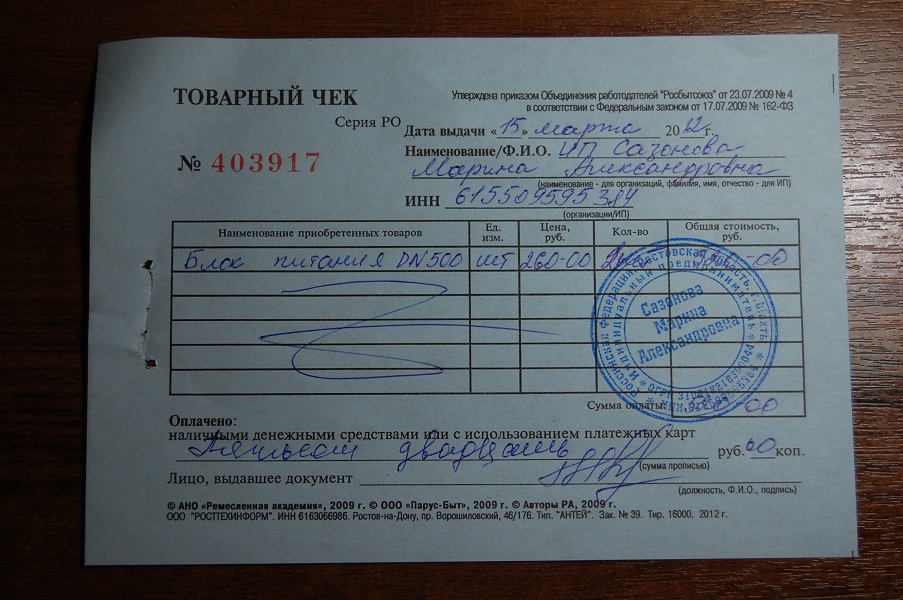 ТОВАРНЫЙ ЧЕК
Утверждена приказом Объединения работодателей "Росбытсоюз" от 23.07.2009 № 4
в соответствии с Федеральным законом от 17.07.2009 № 162-ФЗ
Серия РО
Дата выдачи «15» марта 2012 г.
№ 403917
Наименование/Ф.И.О. ИП Сазонова
Марина Александровна
(наименование - для организаций, фамилия, имя, отчество - для ИП)
ИНН 615509595384
(организации/ИП)
Наименование приобретенных товаров Ед. изм. Цена, руб. Кол-во Общая стоимость, руб.
Блок питания DN500 шт 260-00 -00
Российская Федерация Ростовская область, г. Шахты
Индивидуальный предприниматель
Сазонова
Марина
Александровна
Сумма оплаты: 00
Оплачено:
наличными денежными средствами или с использованием платежных карт
Пятьсот двадцать руб. 00 коп.
(сумма прописью)
Лицо, выдавшее документ
(должность, Ф.И.О., подпись)
© АНО «Ремесленная академия», 2009 г. © ООО «Парус-Быт», 2009 г. © Авторы РА, 2009 г.
ООО "РОСТТЕХИНФОРМ". ИНН 6163066986. Ростов-на-Дону, пр. Ворошиловский, 46/176. Тип. "АНТЕЙ". Зак. № 39. Тир. 16000. 2012 г.